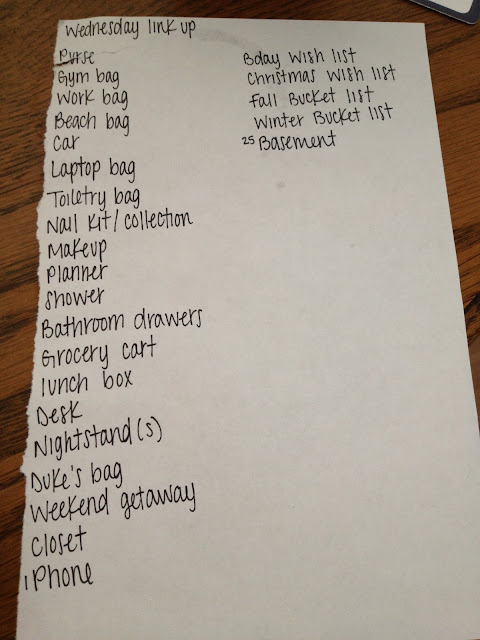 Wednesday link up
Purse
Gym bag
Work bag
Beach bag
Car
Laptop bag
Toiletry bag
Nail kit/collection
Makeup
Planner
Shower
Bathroom drawers
Grocery cart
lunch box
Desk
Nightstand(s)
Duke's bag
Weekend getaway
Closet
iPhone
Bday Wish list
Christmas Wish list
Fall Bucket list
Winter Bucket list
25 Basement